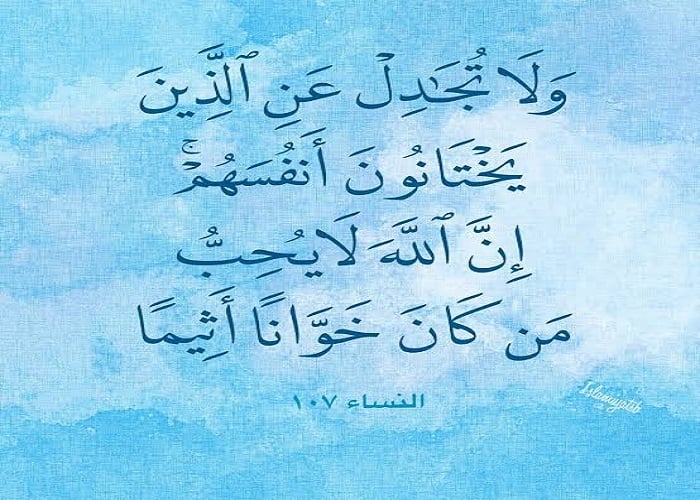 وَلَا تُجَٰدِلْ عَنِ ٱلَّذِينَ
يَخْتَانُونَ أَنفُسَهُمْۚ
إِنَّ ٱللَّهَ لَا يُحِبُّ
مَن كَانَ خَوَّانًا أَثِيمًا
النساء ١٠٧